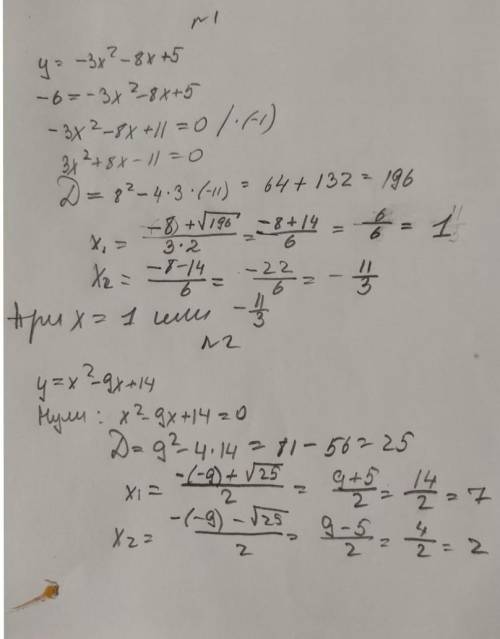 №1
y = -3x²-8x+5
-6 = -3x²-8x+5
-3x²-8x+11=0 /·(-1)
3x²+8x-11=0
D = 8²-4·3·(-11) = 64+132=196
x₁ = (-8)+√196 / 3·2 = -8+14 / 6 = 6/6 = 1
x₂ = -8-14 / 6 = -22 / 6 = - 11/3
При x = 1 или - 11/3
№2
y=x²-9x+14
Нули: x²-9x+14=0
D=9²-4·14=81-56=25
x₁= -(-9)+√25 / 2 = 9+5 / 2 = 14/2 = 7
x₂= -(-9)-√25 / 2 = 9-5 / 2 = 4/2 = 2